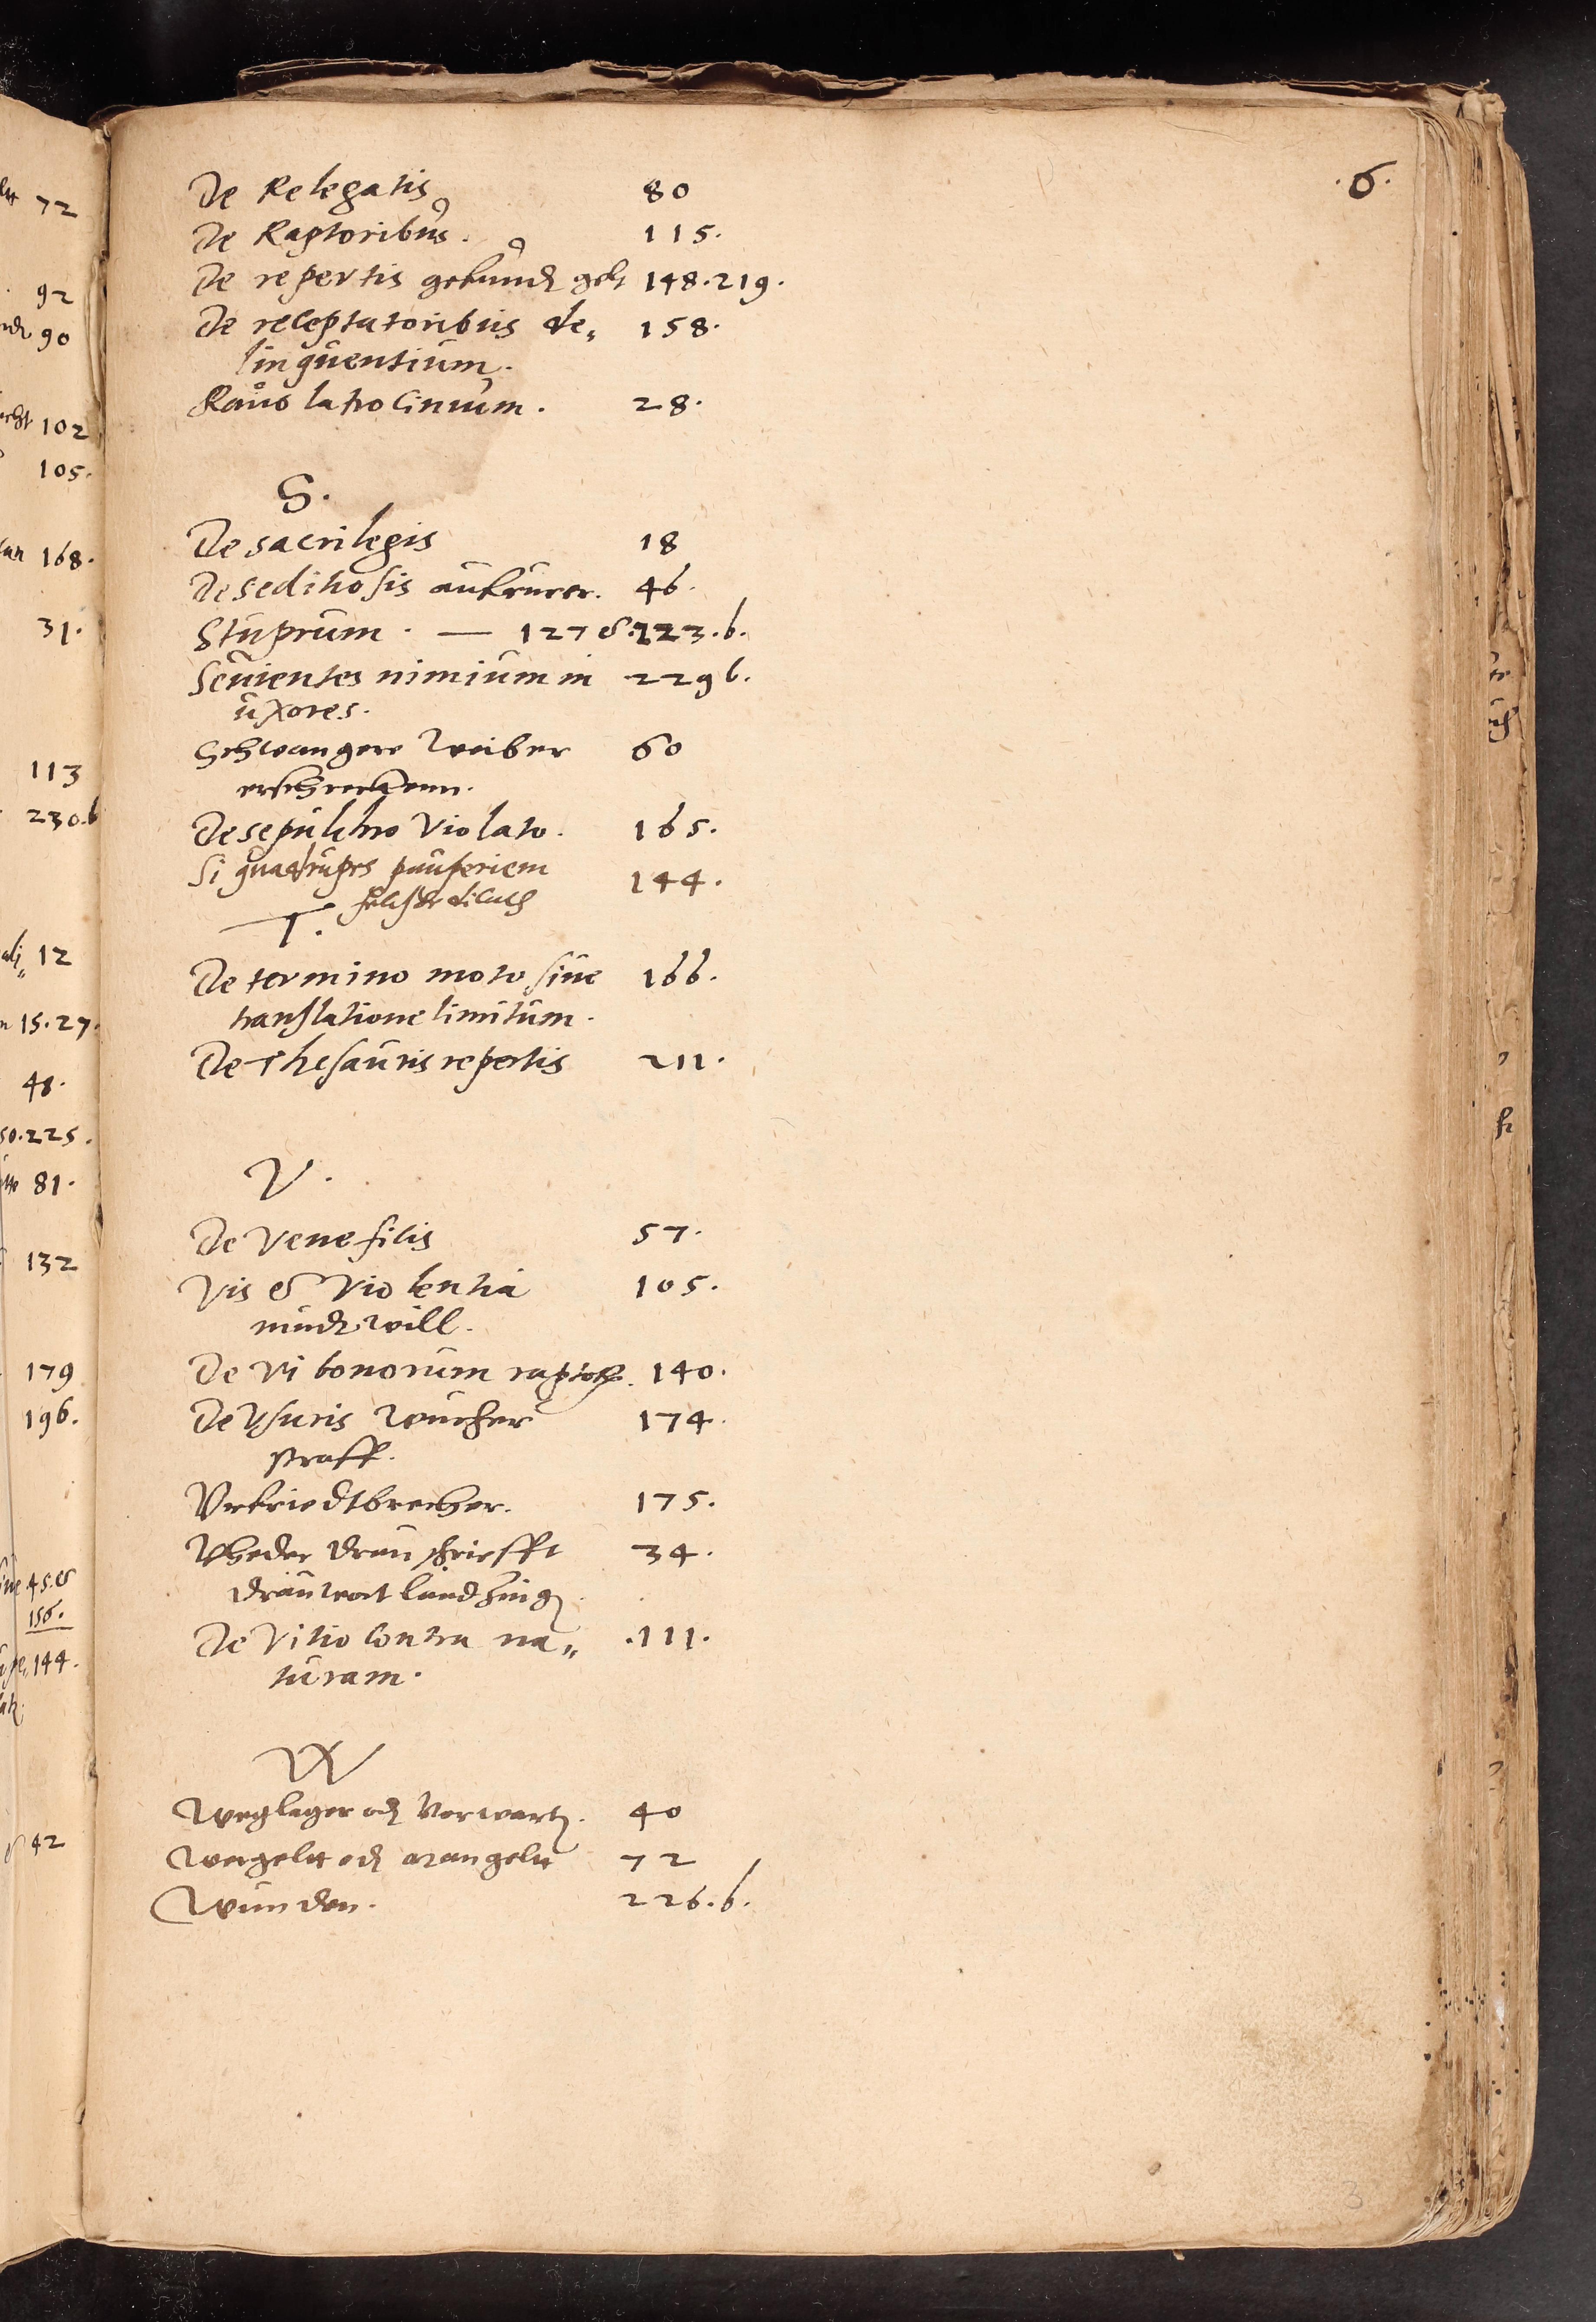 .6.
De Relegatis 80
De Raptoribus. 115.
De repertis gefund gelt 148.219.
De receptatoribus de„ 158.
linquentium.
Raub latrocinium. 28.
S.
De sacrilegis 18
De seditiosis aufrurer. 46.
Stuprum. — 127 & 223.b.
Sevientes nimium in 229 b.
uxores.
Schwangere Weiber 60
erschreckenn.
De sepulchro Violato. 165.
Si quadrupes pauperiem 144.
T.
De termino moto sive 166.
translatione limitum.
De Thesauris repertis 211.
V.
De Veneficis 57.
Vis & Violentia 105.
mudtwill.
De Vi bonorum raptor. 140.
De Vsuris Wucher 174.
straff.
Vrfriedtbrecher. 175.
Vheder drau schriefft 34.
drauwort
De Vitio Contra na„ .111.
turam.
W
Weglager od Vorwart. 40
Wergelt od 72
Wunden. 226.b.
72
92
90
102
105.
168.
31.
113
230.b
12
15.27.
48.
50.225.
81.
132
179
196.
45.&
156.
144.
42
3